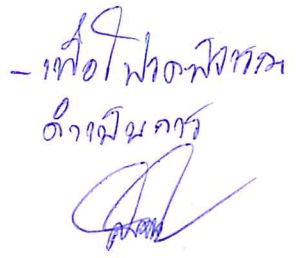 - เพื่อโปรดพิจารณา
ดำเนินการ